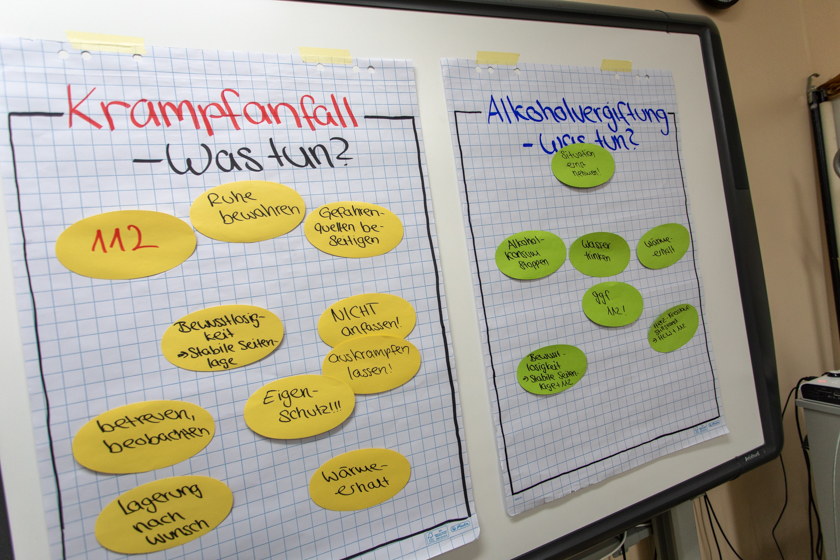 Krampfanfall
-Was tun?
112
Ruhe
bewahren
Gefahren-
quellen be-
seitigen
Bewusstlosig-
keit
→ Stabile Seiten-
lage
NICHT
anfassen!
auskrampfen
lassen!
Eigen-
schutz!!!
betreuen,
beobachten
Wärme-
erhalt
Lagerung
nach
wunsch
Alkoholvergiftung
- was tun?
Situation
ernst
nehmen!
Alkohol-
konsum
stoppen
Wasser
trinken
Wärme-
erhalt
ggf.
112!
Bewusst-
losigkeit
→ Stabile Seiten-
lage + 112
→ HLW + 112